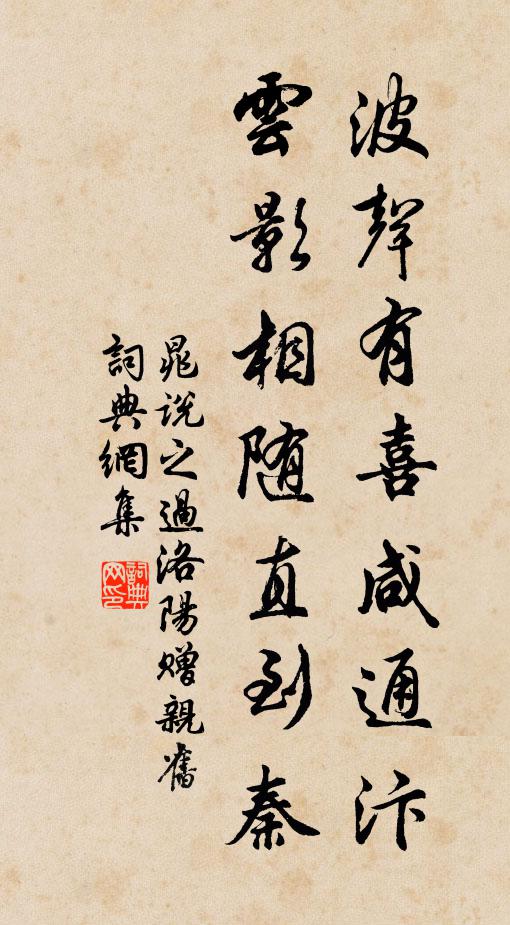 波聲有喜咸通汴
雲影相随直到秦
晁說之過洛陽贈親舊
詞典網集
詞典网印